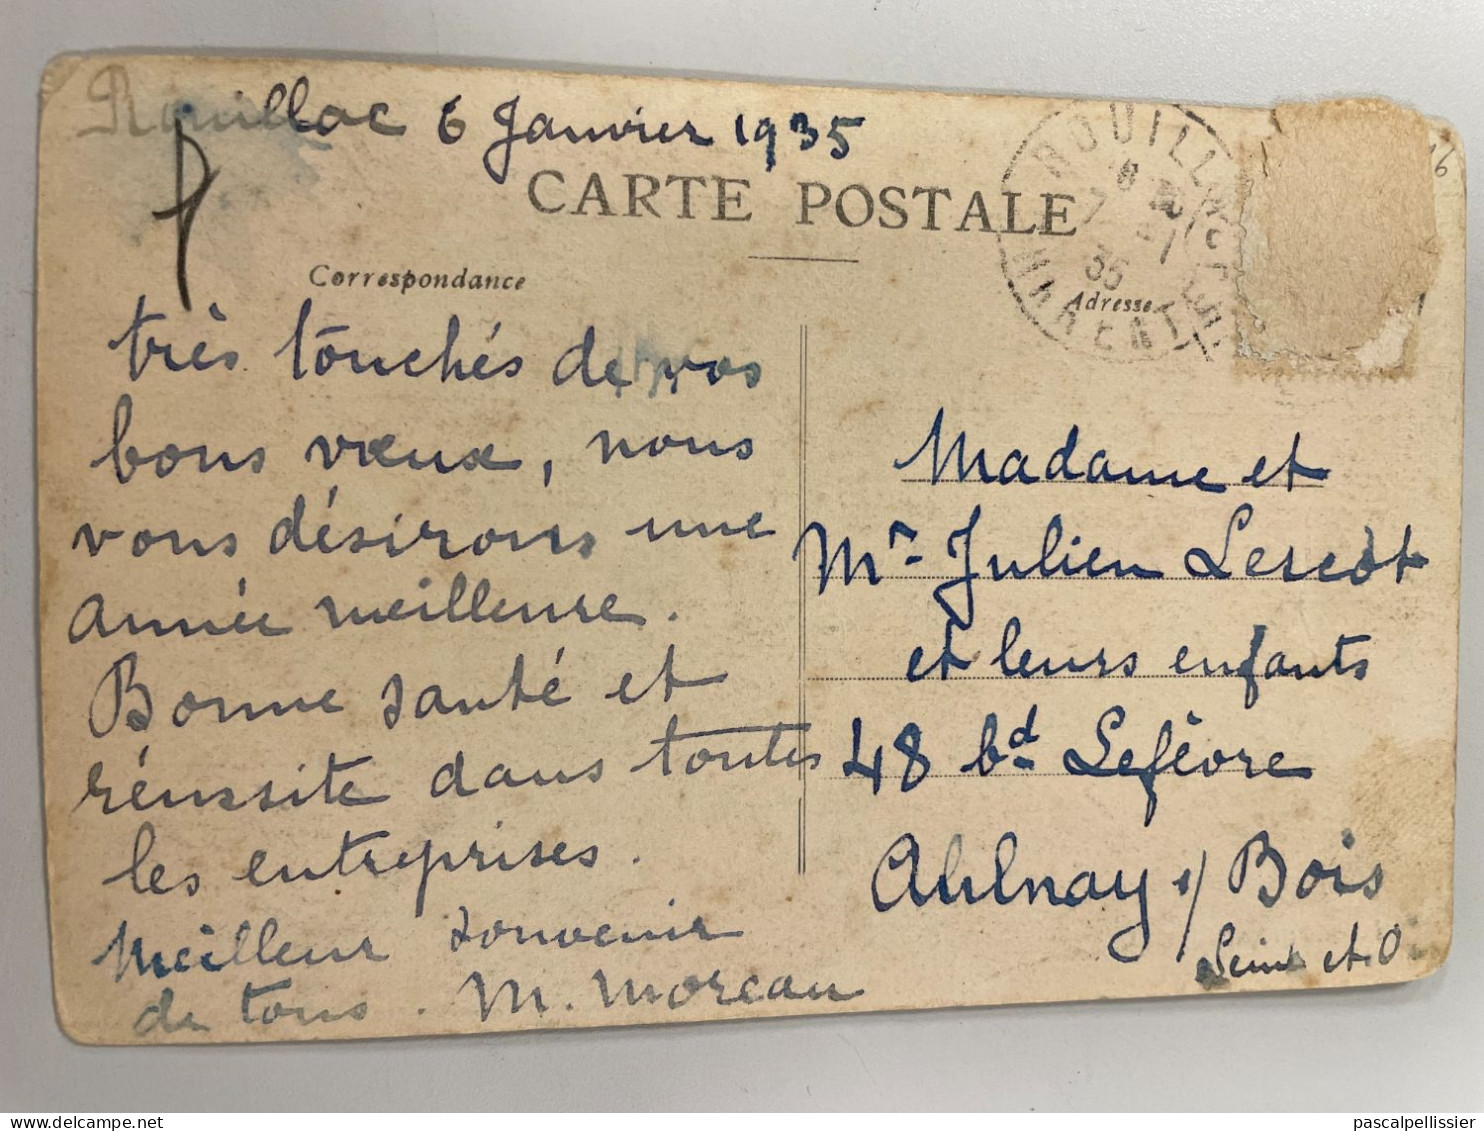 Rouillac 6 Janvier 1935
CARTE POSTALE
Correspondance
très touchés de vos
bons vœux, nous
vous désirons une
année meilleure.
Bonne santé et
réussite dans toutes
les entreprises.
Meilleur souvenir
de tous. M. Moreau
ROUILLAC
7 -1
35
CHARENTE
Adresse
Madame et
Mr Julien Lescot
et leurs enfants
48 bd Lefèvre
Aulnay s/ Bois
Seine et O
16
pascalpellissier